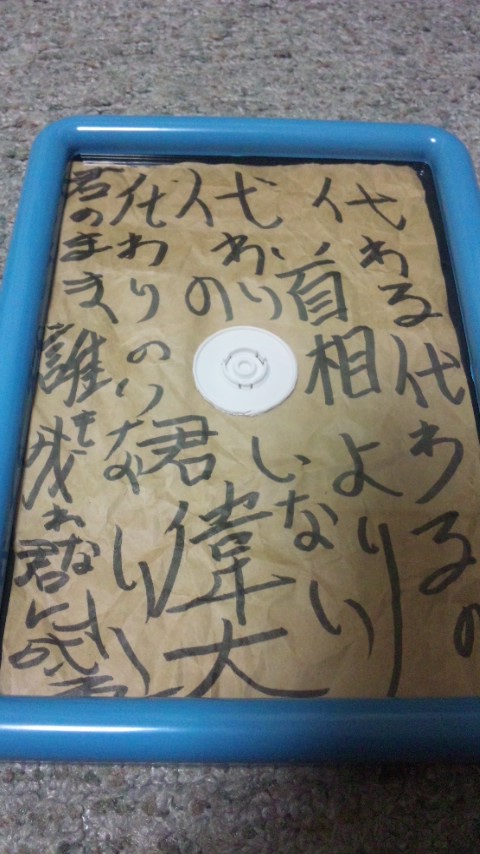 代わる代わるの
首相より
代わりのいない
君偉大
代わりのいない
君のまま誰も成れない君に